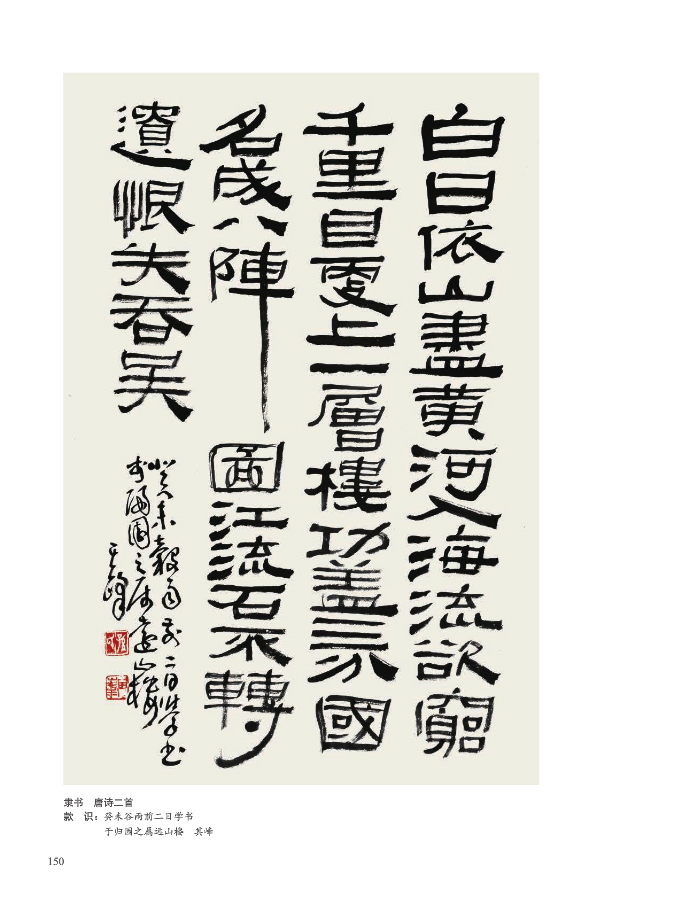 白日依山盡黄河入海流欲窮
千里目更上一層樓功盖三分國
名成八陣圖江流石不轉
遺恨失吞吴
癸未穀雨前二日學书
于歸園之遠山樓
其峰
隶书 唐诗二首
款 识：癸未谷雨前二日学书
于归园之远山楼 其峰
150